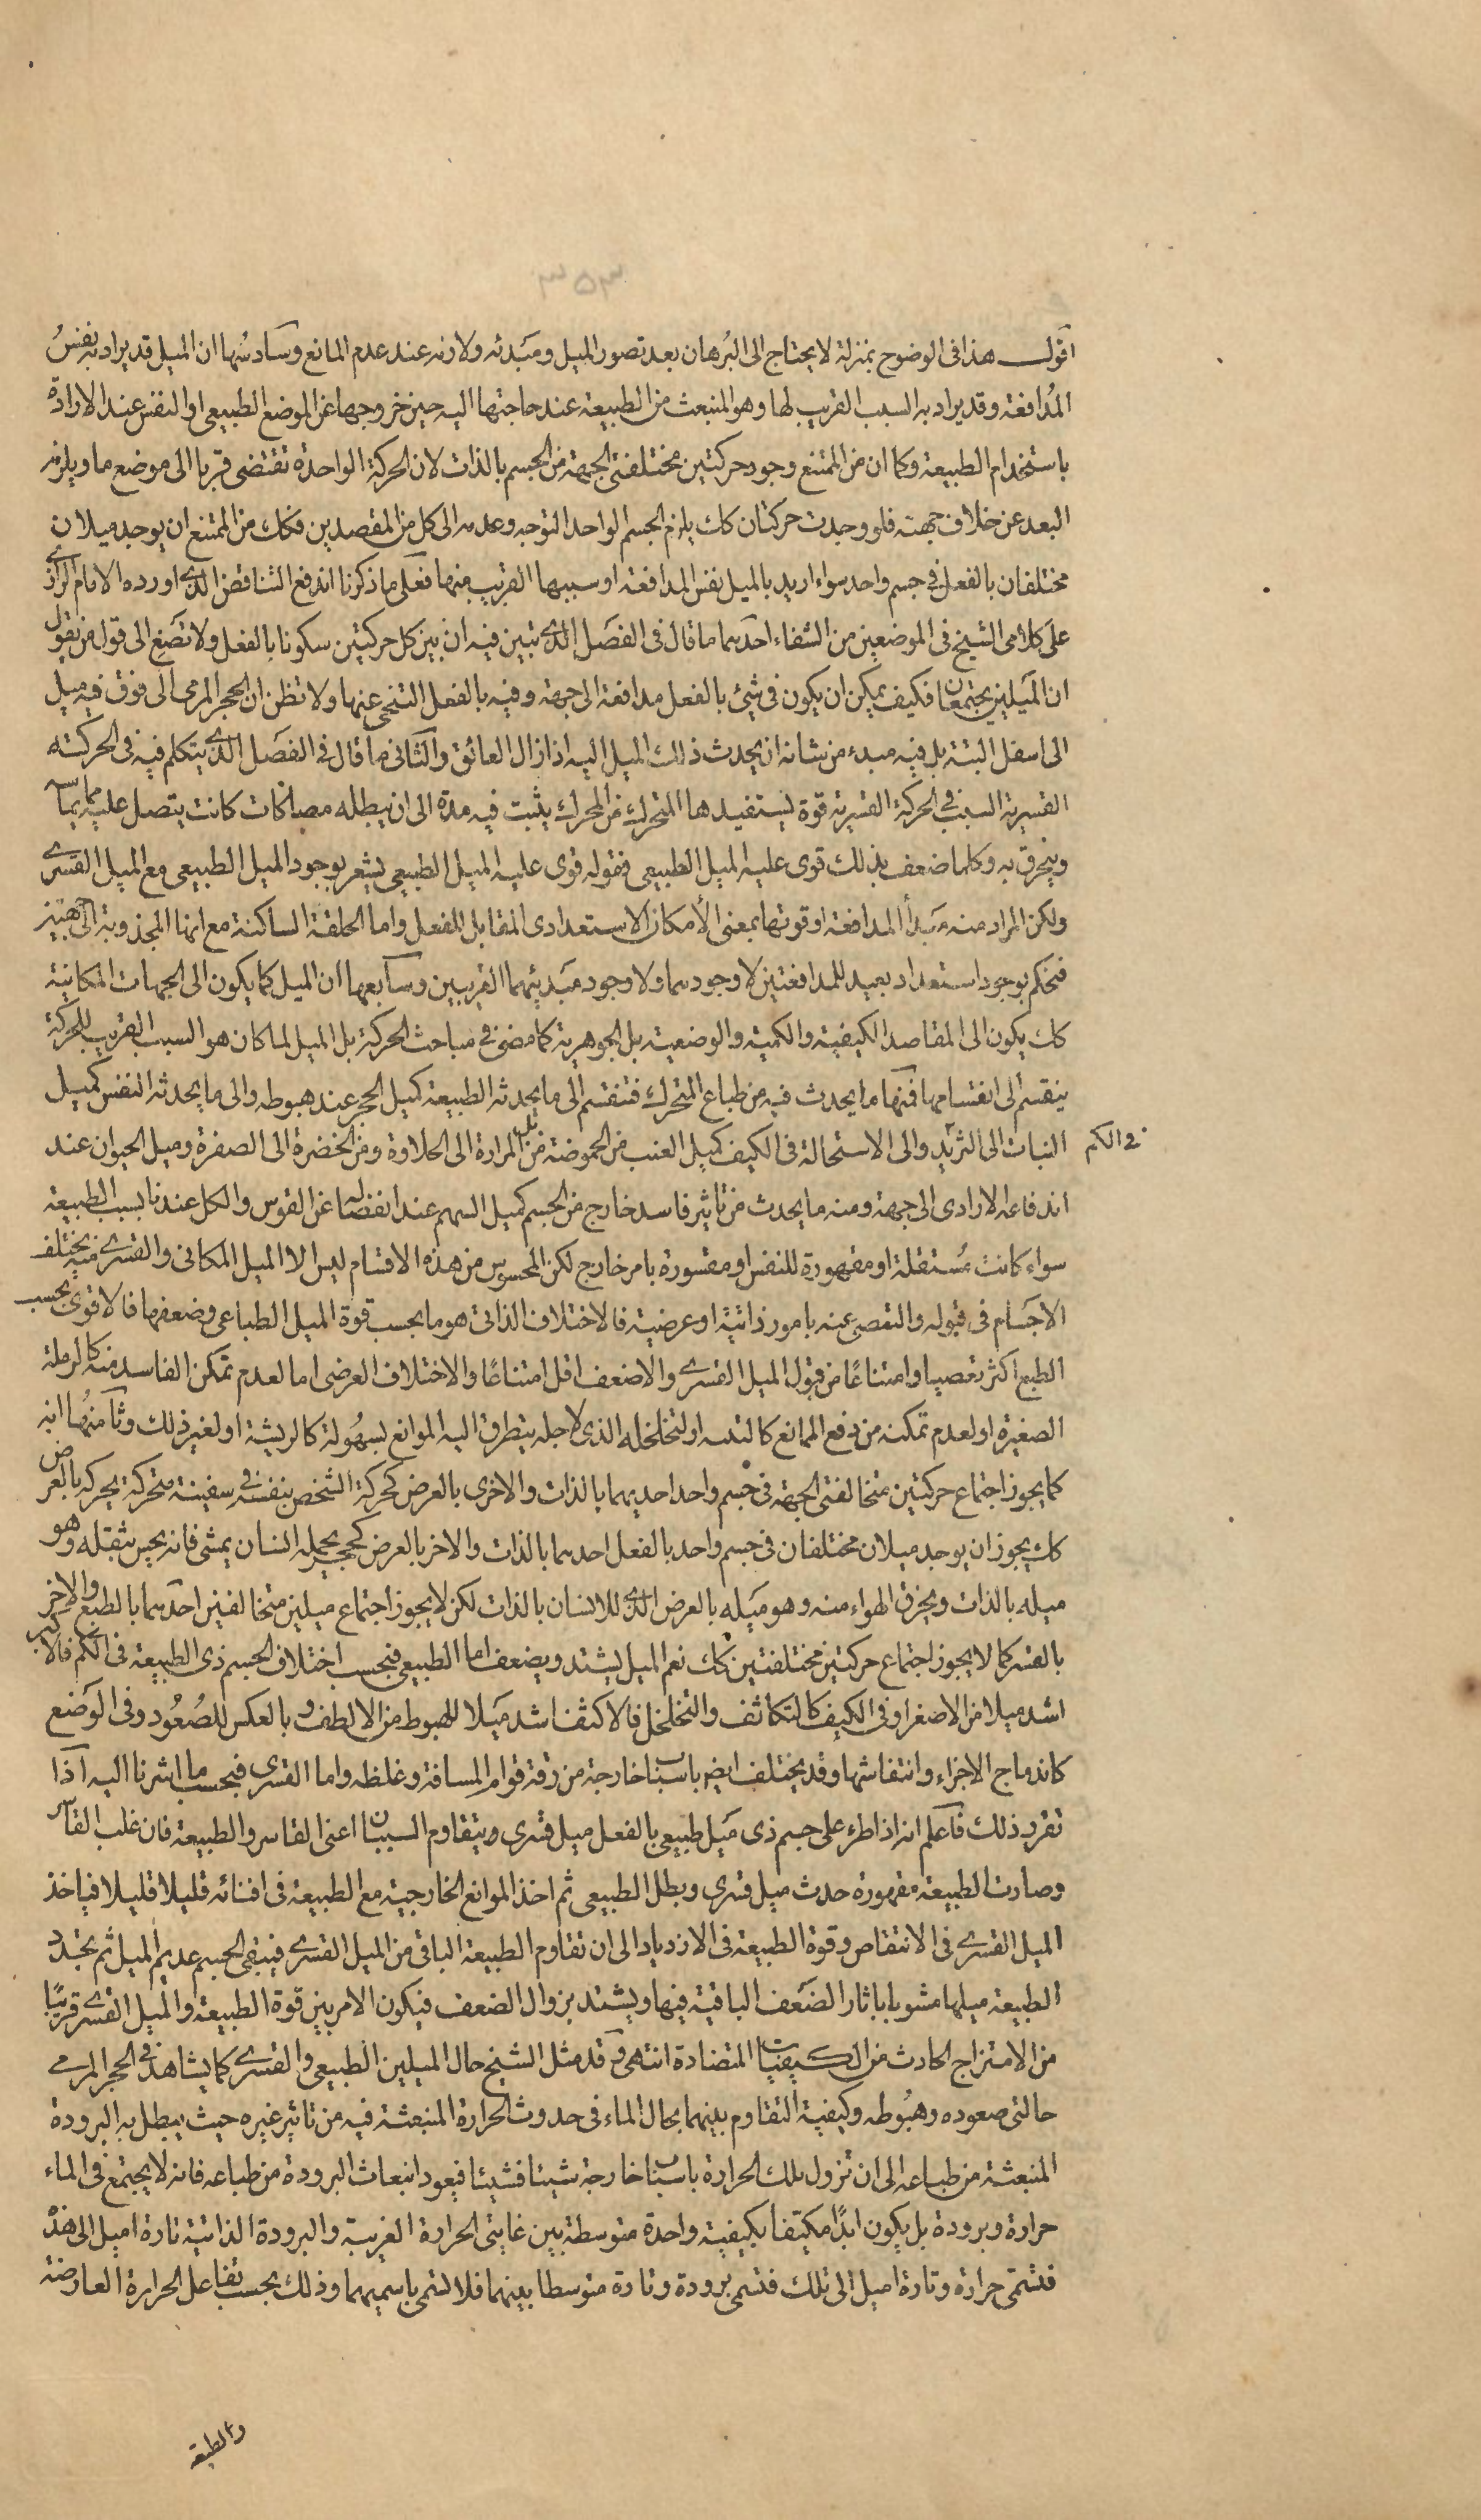 اقول هذا فى الوضوح بمنزلة لا يحتاج الى البرهان بعد تصور الميل ومبدئه ولازمه عند عدم المانع وسادسها ان الميل قد يراد به نفس
المدافعة وقد يراد به السبب القريب لها وهو المنبعث من الطبيعة عند حاجتها اليه حين خروجها عن الموضع الطبيعى او النفس عند الارادة
باستخدام الطبيعة وكما ان من الممتنع وجود حركتين مختلفتى الجهة من الجسم بالذات لان الحركة الواحدة تقتضى قربا الى موضع ما ويلزمه
البعد عن خلاف جهته فلو وجدت حركتان كك يلزم الجسم الواحد التوجه وعدمه الى كل من المقصدين فكك من الممتنع ان يوجد ميلان
مختلفان بالفعل فى جسم واحد سواء اريد بالميل نفس المدافعة او سببها القريب منها فعلى ما ذكرنا اندفع التناقض الذى اورده الامام الرازى
على كلامى الشيخ فى الموضعين من الشفاء احدهما ما قال فى الفصل الذى تبين فيه ان بين كل حركتين سكونا بالفعل ولا تصغ الى قول من يقول
ان الميلين يجتمعان فكيف يمكن ان يكون فى شيئ بالفعل مدافعة الى جهة وفيه بالفعل التنحى عنها ولا تظن ان الحجر المرمى الى فوق فيه ميل
الى اسفل البتة بل فيه مبدء من شانه ان يحدث ذلك الميل اليه اذا زال العائق والثانى ما قال فى الفصل الذى يتكلم فيه فى الحركته
القسرية السبب فى الحركة القسرية قوة يستفيدها المتحرك من المحرك يثبت فيه مدة الى ان يبطله مصاكات كانت يتصل عليه مما يماسه
وينخرق به وكلما ضعف بذلك قوى عليه الميل الطبيعى فقوله قوى عليه الميل الطبيعى يشعر بوجود الميل الطبيعى مع الميل القسرى
ولكن المراد منه مبدأ المدافعة او قوتها بمعنى الأمكان الاستعدادى المقابل للفعل واما الحلقة الساكنة مع انها المجذوبة الى جهتين
فنحكم بوجود استعداد بعيد للمدافعتين لا وجودهما ولا وجود مبدئيهما القريبين وسابعها ان الميل كما يكون الى الجهات المكانية
كك يكون الى المقاصد الكيفية والكمية والوضعية بل الجوهرية كما مضى فى مباحث الحركة بل الميل لما كان هو السبب القريب للحركة
ينقسم الى انقسامها فمنها ما يحدث فيه من طباع المتحرك فتنقسم الى ما يحدثه الطبيعة كميل الحجر عند هبوطه والى ما يحدثه النفس كميل
النبات الى التزيد والى الاستحالة فى الكيف كميل العنب من الحموضة بل من المرارة الى الحلاوة ومن الخضرة الى الصفرة وميل الحيوان عند
فى الكم
اندفاعه الارادى الى جهة ومنه ما يحدث من تاثير قاسر خارج من الجسم كميل السهم عند انفصاله عن القوس والكل عندنا بسبب الطبيعة
سواء كانت مستقلة او مقهورة للنفس او مقسورة بامر خارج لكن المحسوس من هذه الاقسام ليس الا الميل المكانى والقسرى منه يختلف
الاجسام فى قبوله والتعصى عنه بامور ذاتية او عرضية فالاختلاف الذاتى هو ما بحسب قوة الميل الطباعى وضعفها فالاقوى بحسب
الطبع اكثر تعصيا وامتناعًا من قبول الميل القسرى والاضعف اقل امتناعًا والاختلاف العرضى اما لعدم تمكن القاسر منه كالرملة
الصغيرة او لعدم تمكنه من دفع الممانع كالتبنه او لتخلخله الذى لاجله يتطرق اليه الموانع بسهولة كالريشة او لغير ذلك وثامنها انه
كما يجوز اجتماع حركتين متخالفتى الجهة فى جسم واحد احديهما بالذات والاخرى بالعرض كحركة الشخص بنفسه فى سفينة متحركة يحركه بالعرض
كك يجوز ان يوجد ميلان مختلفان فى جسم واحد بالفعل احدهما بالذات والاخر بالعرض كحجر يحمله انسان يمشى فانه يحس بثقله وهو
ميله بالذات ويخرق الهواء منه وهو ميله بالعرض الذى للانسان بالذات لكن لا يجوز اجتماع ميلين متخالفين احدهما بالطبع والاخر
بالقسر كما لا يجوز اجتماع حركتين مختلفتين كك نعم الميل يشتد ويضعف اما الطبيعى فبحسب اختلاف الجسم ذى الطبيعة فى الكم فالاكبر
اشد ميلا من الاصغر او فى الكيف كالتكاثف والتخلخل فالاكثف اشد ميلا للهبوط من الالطف وبالعكس للصعود وفى الوضع
كاندماج الاجزاء وانتفاشها وقد يختلف ايض باسباب خارجة من رقة قوام المسافة وغلظه واما القسرى فبحسب ما اشرنا اليه اذا
تقرر ذلك فاعلم انه اذا طرء على جسم ذى ميل طبيعى بالفعل ميل قسرى ويتقاوم السببان اعنى القاسر والطبيعة فان غلب القاسر
وصارت الطبيعة مقهورة حدث ميل قسرى وبطل الطبيعى ثم اخذ الموانع الخارجية مع الطبيعة فى افنائه قليلا قليلا فياخذ
الميل القسرى فى الانتقاص وقوة الطبيعة فى الازدياد الى ان تقاوم الطبيعة الباقى من الميل القسرى فيبقى الجسم عديم الميل ثم تجدد
الطبيعة ميلها مشوبا باثار الضعف الباقية فيها ويشتد بزوال الضعف فيكون الامر بين قوة الطبيعة والميل القسرى قريبًا
من الامتزاج الحادث من الكيفيات المتضادة انتهى وقد مثل الشيخ حال الميلين الطبيعى والقسرى كما يشاهد فى الحجر المرمى
حالتى صعوده وهبوطه وكيفية التقاوم بينهما بحال الماء فى حدوث الحرارة المنبعثة فيه من تاثير غيره حيث يبطل به البرودة
المنبعثة من طباعه الى ان تزول تلك الحرارة باسباب خارجة شيئا فشيئا فيعود انبعاث البرودة من طباعه فانه لا يجتمع فى الماء
حرارة وبرودة بل يكون ابدًا مكتيفا بكيفية واحدة متوسطة بين غايتى الحرارة الغريبة والبرودة الذاتية تارة اميل الى هذه
فتسمى حرارة وتارة اميل الى تلك فتسمى برودة وتارة متوسطا بينهما فلا تسمى باسميهما وذلك بحسب تفاعل الحرارة العارضة
والطبيعة